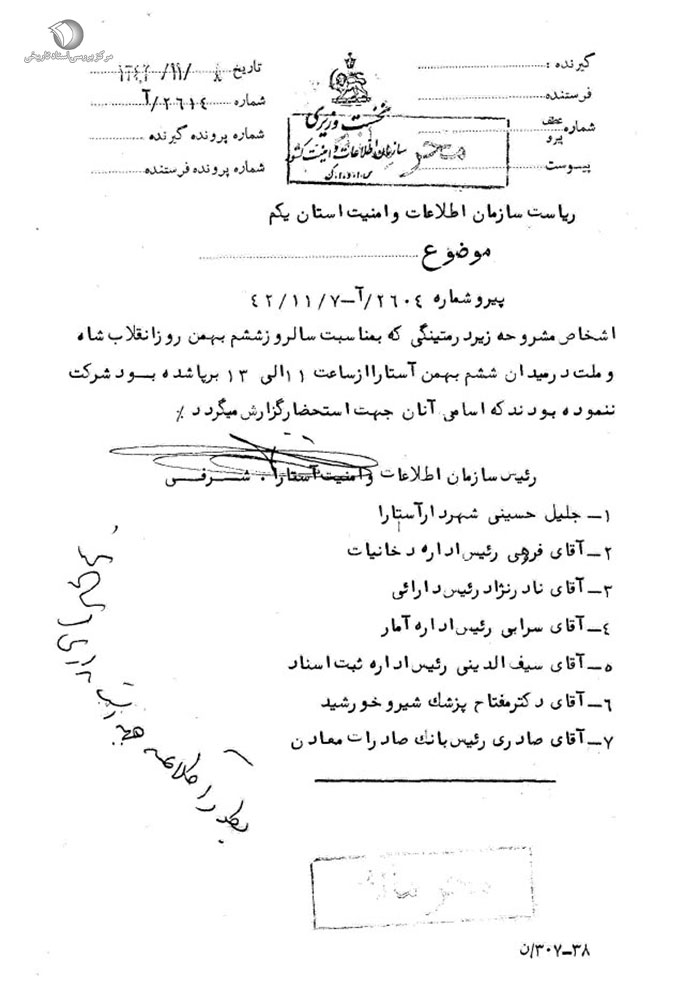 مرکز بررسی اسناد تاریخی
گیرنده :
فرستنده
شماره عطف
پیرو
پیوست
نخست وزیری
سازمان اطلاعات و امنیت کشور
س.ا.و.ا.ک
تاریخ ۸ /۱۱/ ۱۳۴۲
شماره ۲۶۱۴/آ
شماره پرونده گیرنده
شماره پرونده فرستنده
ریاست سازمان اطلاعات و امنیت استان یکم
موضوع
پیرو شماره ۲۶۰۴/آ-۴۲/۱۱/۷
اشخاص مشروحه زیر در متینگی که بمناسبت سالروز ششم بهمن روز انقلاب شاه
و ملت در میدان ششم بهمن آستارا از ساعت ۱۱ الی ۱۳ برپا شده بود شرکت
ننموده بودند که اسامی آنان جهت استحضار گزارش میگردد ٪
رئیس سازمان اطلاعات و امنیت آستارا . شرفی
۱- جلیل حسینی شهردار آستارا
۲- آقای فرهی رئیس اداره دخانیات
۳- آقای نادرنژاد رئیس دارائی
۴- آقای سرابی رئیس اداره آمار
۵- آقای سیف الدینی رئیس اداره ثبت اسناد
۶- آقای دکتر مفتاح پزشک شیر و خورشید
۷- آقای صادری رئیس بانک صادرات معادن
۳۸-۳۰۷/ن